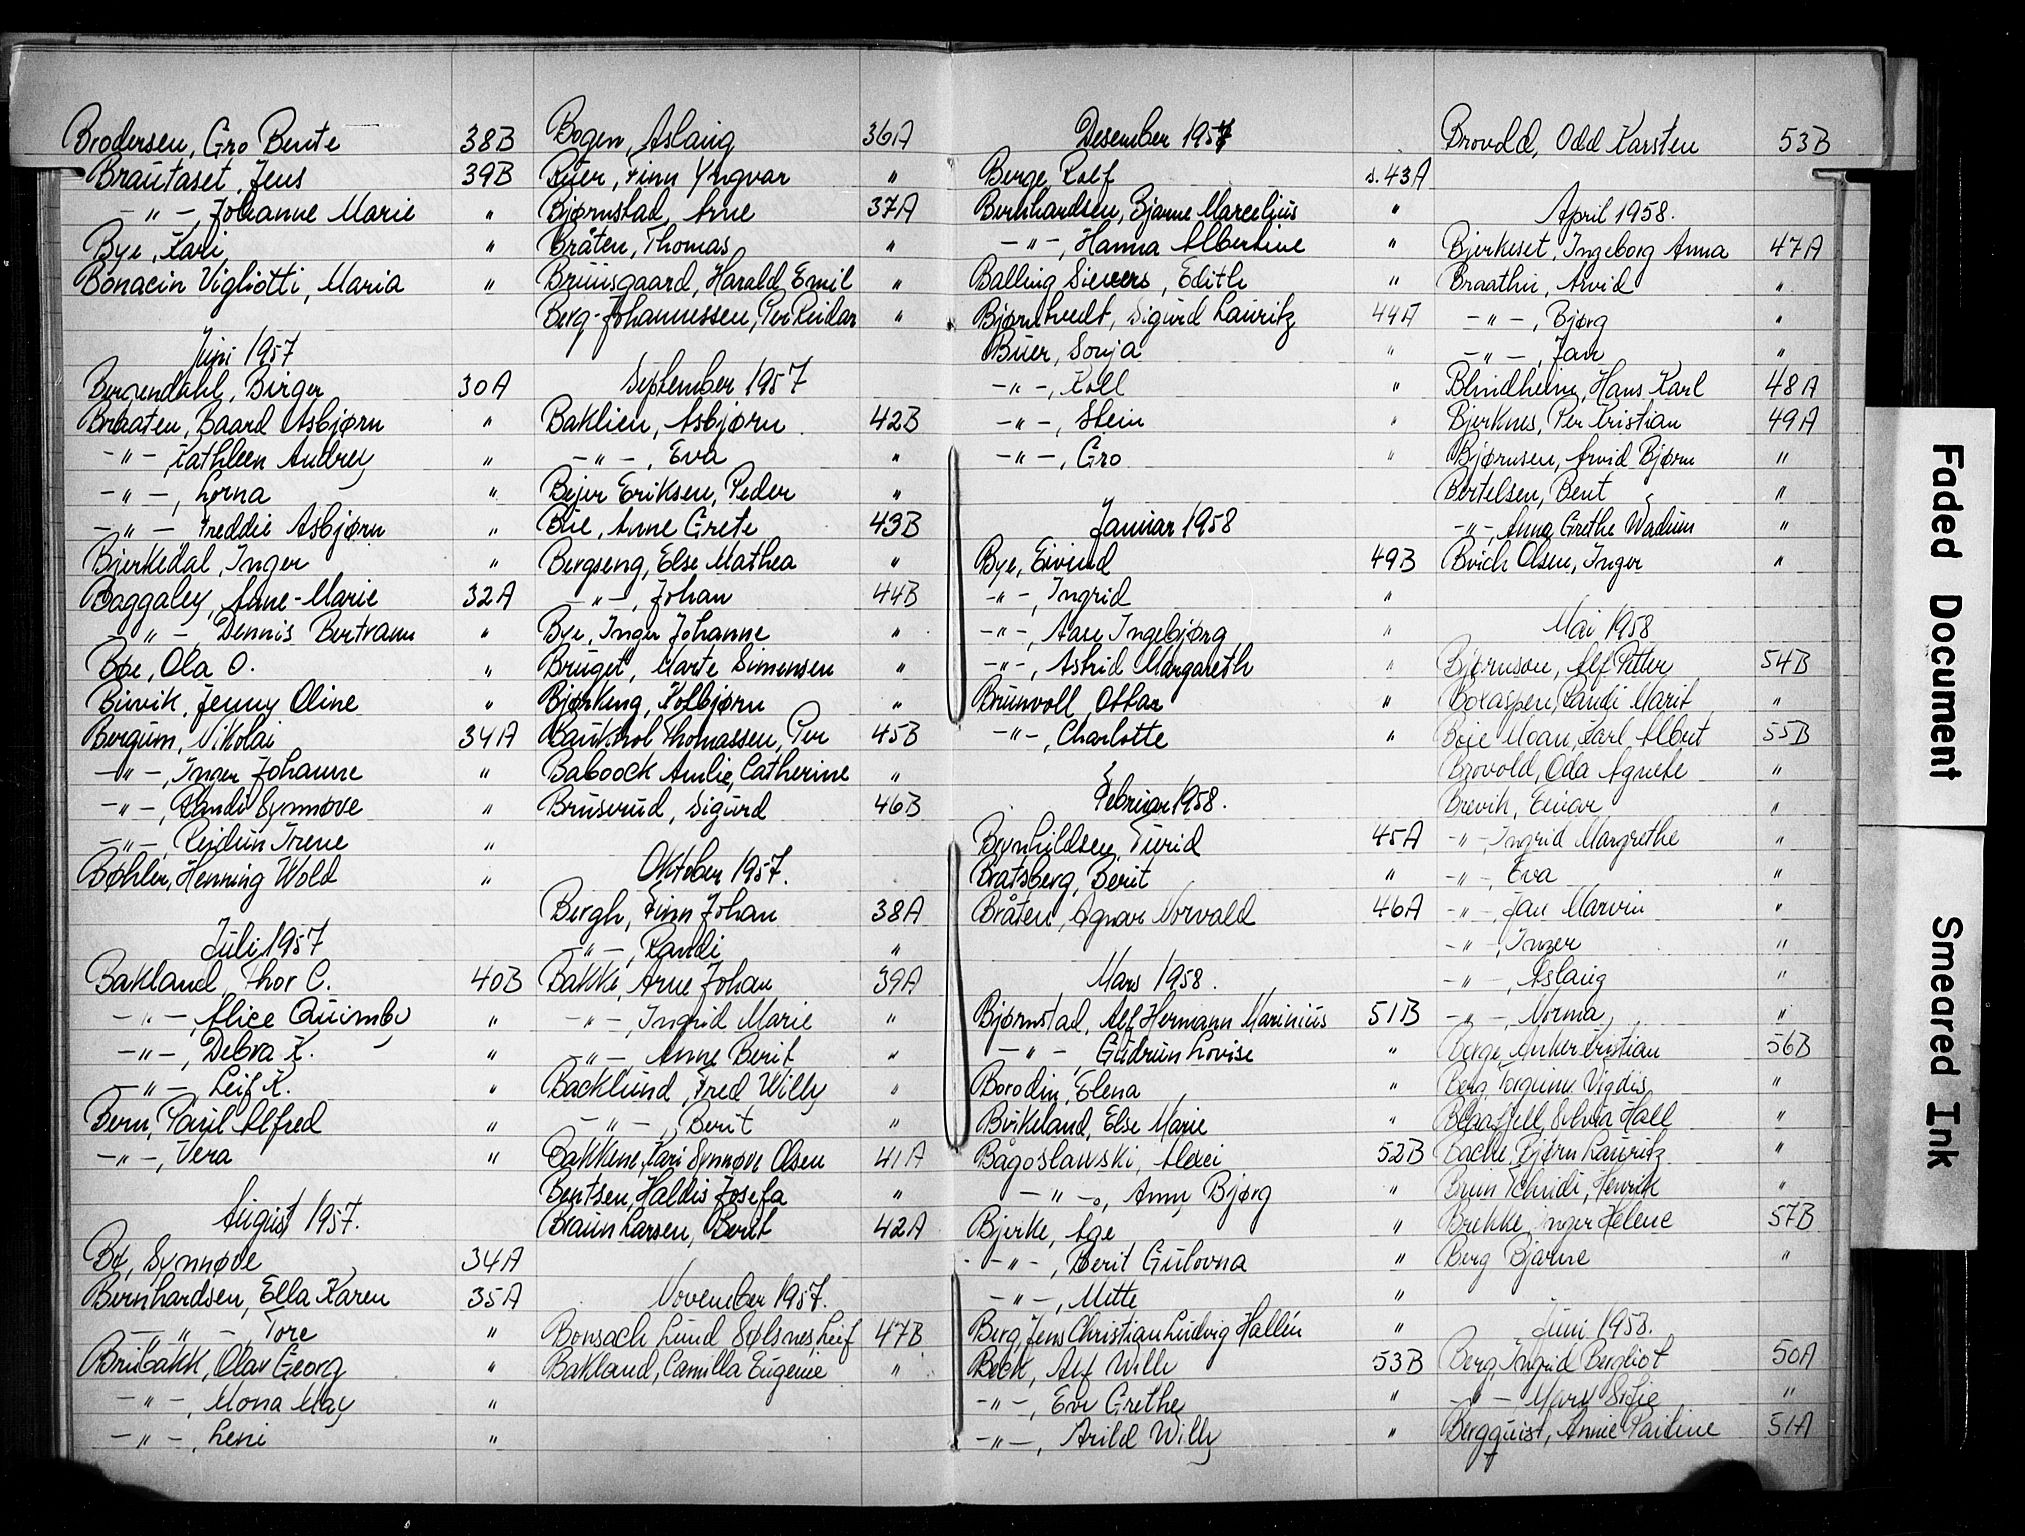 Brodersen, Gro Bente 38B
Brautaset, Jens 39B
-"-, Johanne Marie "
Bye, Kari "
Bonacin Vigliotti, Maria "
Juni 1957
Bergendahl, Birger 30A
Braaten, Baard Asbjørn "
-"-, Kathleen Audrey "
-"-, Lorna "
-"- Freddie Asbjørn "
Bjerkedal, Inger "
Baggaley, Anne-Marie 32A
-"-, Dennis Bertram "
Bøe, Ola O. "
Birvik, Jenny Oline "
Bergum, Nikolai 34A
-"-, Inger Johanne "
-"-, Randi Synnøve "
-"-, Reidun Irene "
Bøhler, Henning Wold "
Juli 1957
Bakland, Thor C. 40B
-"-, Alice Quimby "
-"-, Debra K. "
-"-, Leif K. "
Bern, Paul Alfred "
-"-, Vera "
August 1957.
Bø, Synnøve 34A
Bernhardsen, Ella Karen 35A
-"-, Tore "
Brubakk, Olav Georg "
-"-, Mona May "
-"-, Leni "
Bogen, Aslaug 36A
Buer, Finn Yngvar "
Bjørnstad, Arne 37A
Bråten, Thomas "
Bruusgaard, Harald Emil "
Berg-Johannessen, Per Reidar "
September 1957
Baklien, Asbjørn 42B
-"-, Eva "
Bejer Eriksen, Peder "
Bie, Anne Grete 43B
Bergseng, Else Mathea "
-"-, Johan 44B
Bye, Inger Johanne "
Bruget, Marte Simensen "
Bjørkeng, Kolbjørn "
Thomassen, Per 45B
Baboock Amlie, Catherine "
Bruserud, Sigurd 46B
Oktober 1957.
Bergh, Finn Johan 38A
-"-, Randi "
Bakke, Arne Johan 39A
-"-, Ingrid Marie "
-"-, Anne Berit "
Backlund, Fred Willy "
-"-, Berit "
Bakkene, Kari Synnøve Olsen 41A
Bentsen, Haldis Josefa "
Braun Larsen, Berit 42A
November 1957.
Bonsach Lund Sølsnes, Leif 47B
Bakland, Camilla Eugenie "
Desember 1957
Berge, Rolf s.43A
Bernhardsen, Bjarne Marcelius "
-"-, Hanna Albertine "
Balling Sievers, Edith "
Bjørntvedt, Sigurd Lauritz 44A
Buer, Sonja "
-"-, Koll "
-"-, Stein "
-"-, Gro "
Januar 1958
Bye, Eivind 49B
-"-, Ingrid "
-"-, Aase Ingebjørg "
-"-, Astrid Margareth "
Brunvoll, Ottar "
-"-, Charlotte "
Februar 1958.
Brynhildsen, Turid 45A
Bratsberg, Berit "
Bråten, Agnar Norvald 46A
Mars 1958.
Bjørnstad, Alf Hermann Marinius 51B
-"-, Gudrun Lovise "
Borodin, Elena "
Birkeland, Else Marie "
Bågoslawski, Alexei 52B
-"-, Anny Bjørg "
Bjerke, Åge "
-"-, Berit Gulovna "
-"-, Mette "
Berg, Jens Christian Ludvig Hallén "
Beck, Alf Willy 53B
-"-, Eva Grethe "
-"-, Arild Willy "
Brovold, Odd Karsten 53B
April 1958.
Bjerkeset, Ingeborg Anna 47A
Braathu, Arvid "
-"-, Bjørg "
-"-, Jan "
Blindheim, Hans Karl 48A
Bjerknes, Per Kristian 49A
Bjørnsen, Arvid Bjørn "
Bertelsen, Bent "
-"-, Anna Grethe Wadum "
Brich Olsen, Inger "
Mai 1958
Bjørnson, Alf Petter 54B
Boxaspen, Randi Marit "
Boie Moan, Karl Albert 55B
Brovold, Oda Agnete "
Brevik, Einar "
-"-, Ingrid Margrethe "
-"-, Eva "
-"-, Jan Marvin "
-"-, Inger "
-"-, Aslaug "
-"-, Norma "
Berge, Anker Kristian 56B
Berg, Torgunn Vigdis "
Blaafjell, Sylvia Hall "
Backe, Bjørn Lauritz "
Brun Schmidt, Henrik "
Brekke, Inger Helene 57B
Berg Bjarne "
Juni 1958.
Berg, Ingrid Bergliot 50A
-"- Mary Sofie "
Bergquist, Annie Pauline 51A
Faded Document
Smeared Ink